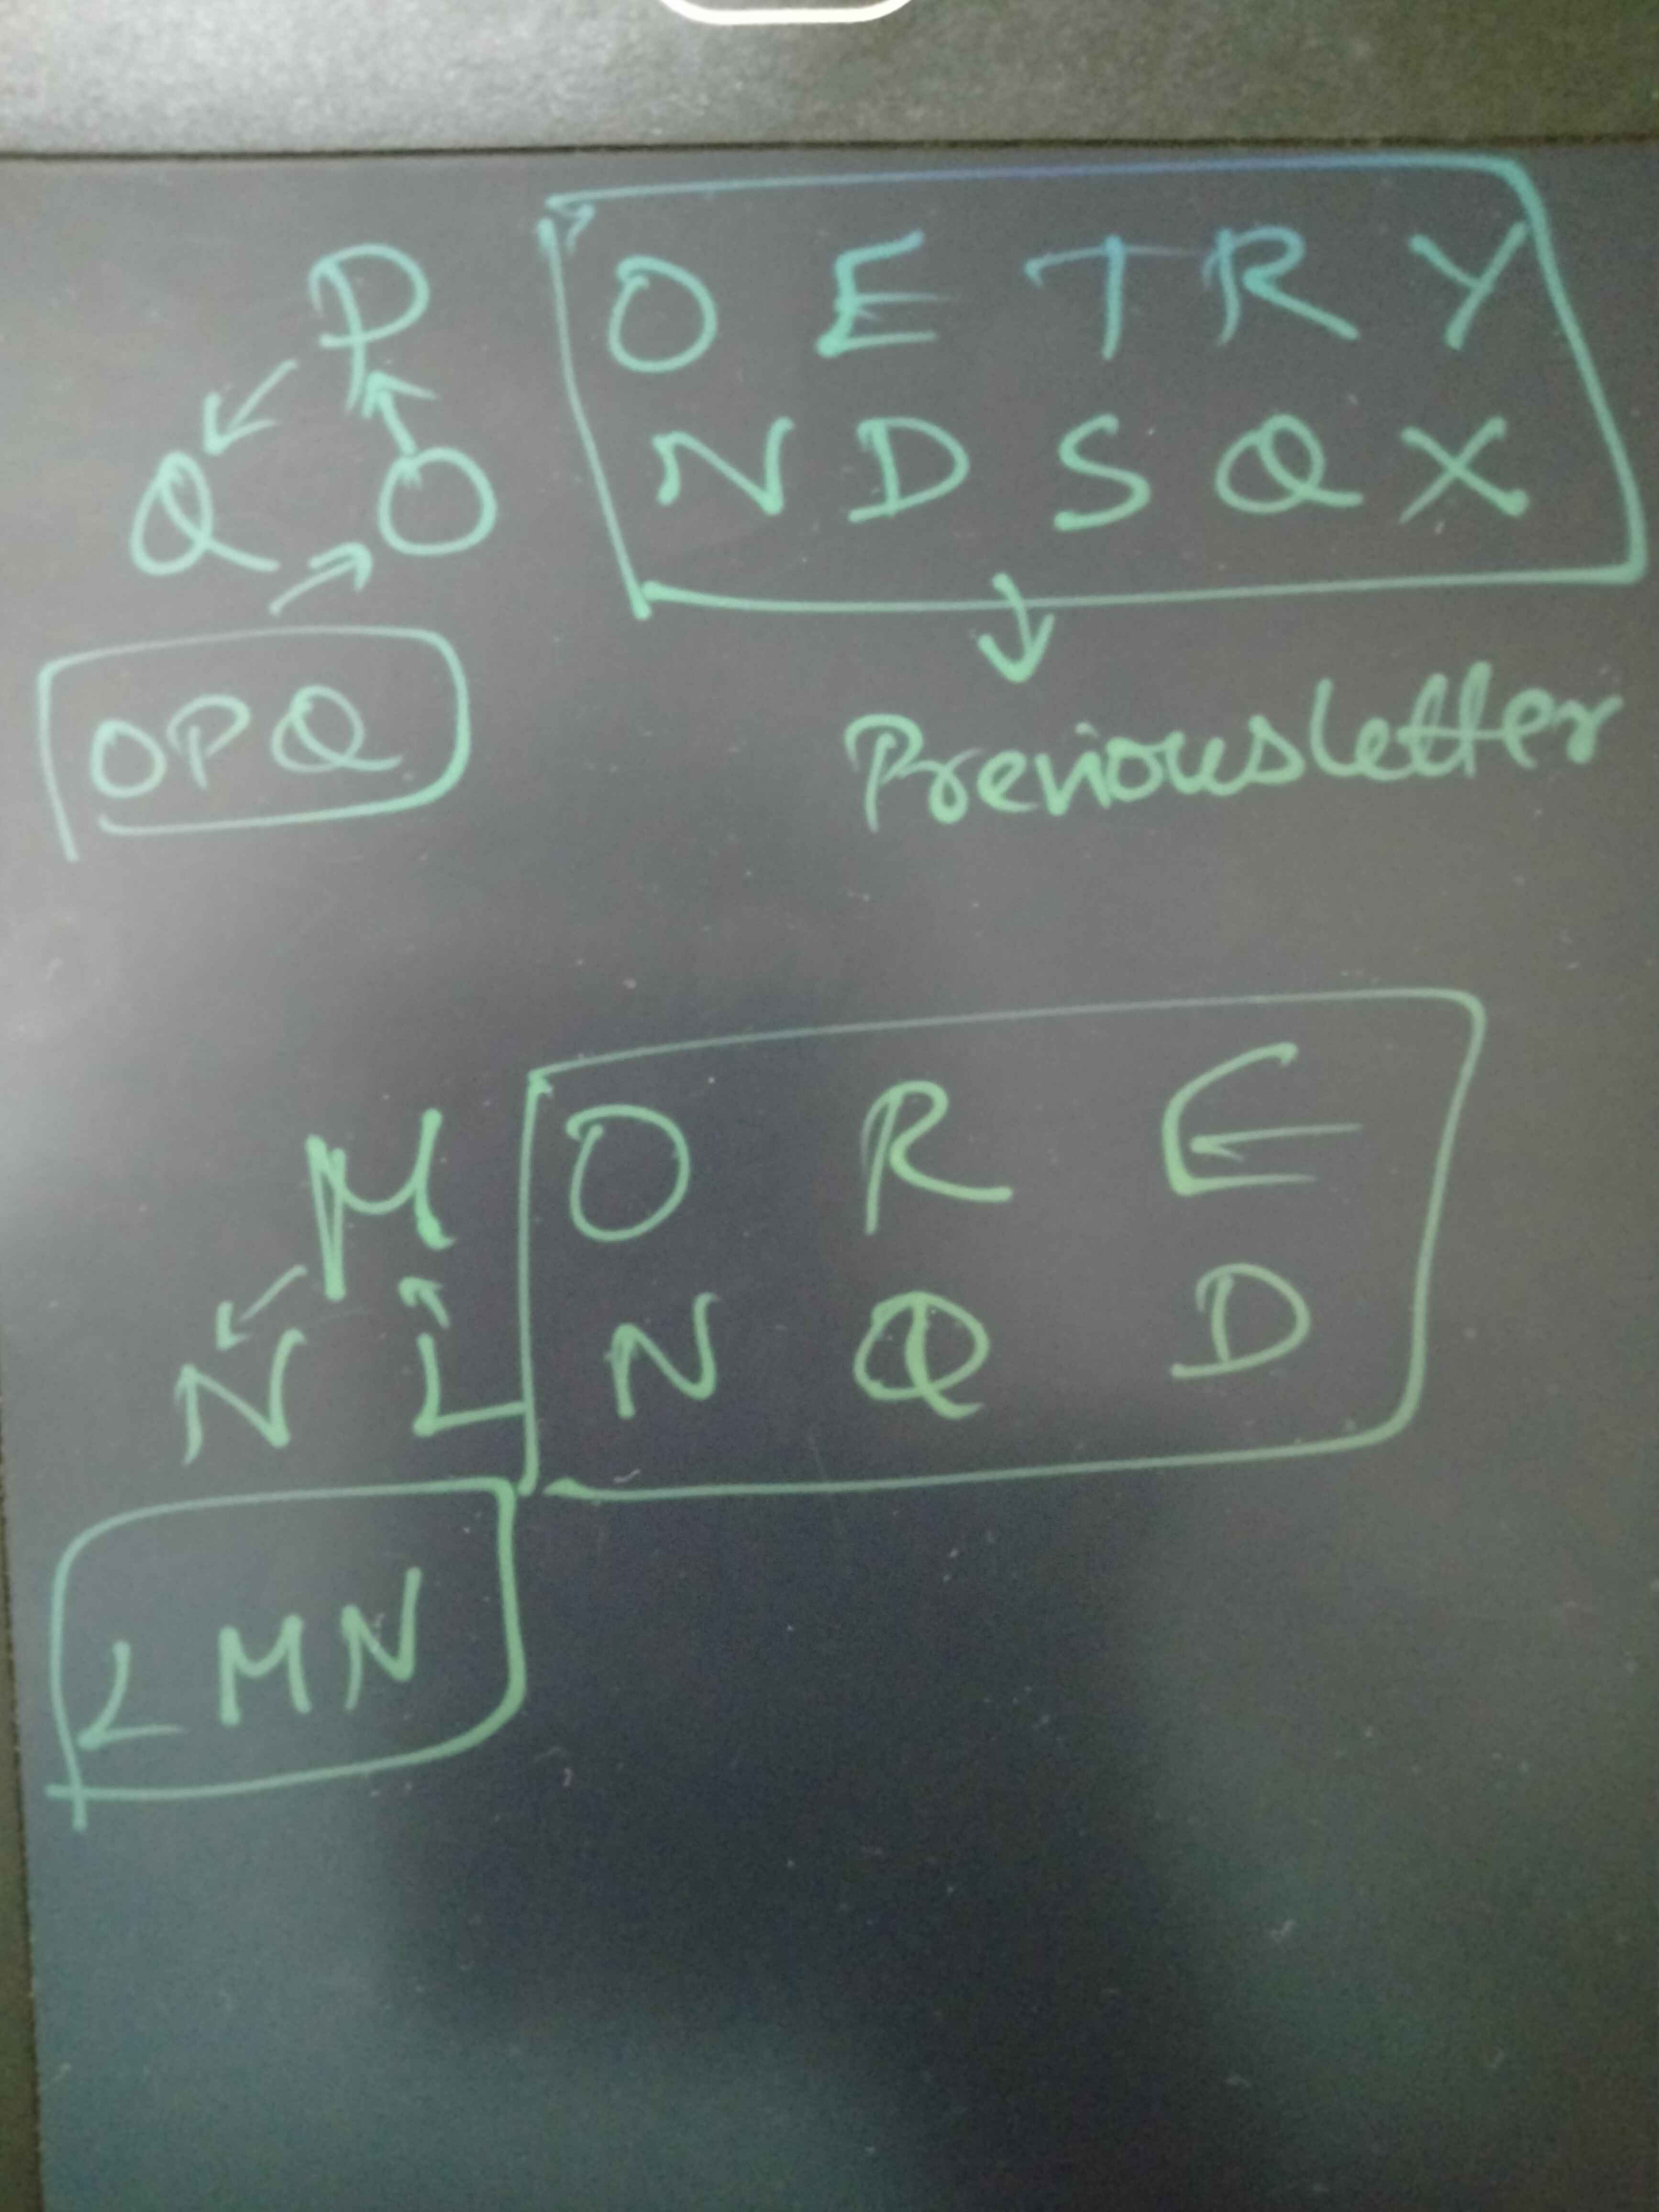 P O E T R Y
Q O N D S Q X
OPQ
Previous letter
M O R E
N L N Q D
L M N